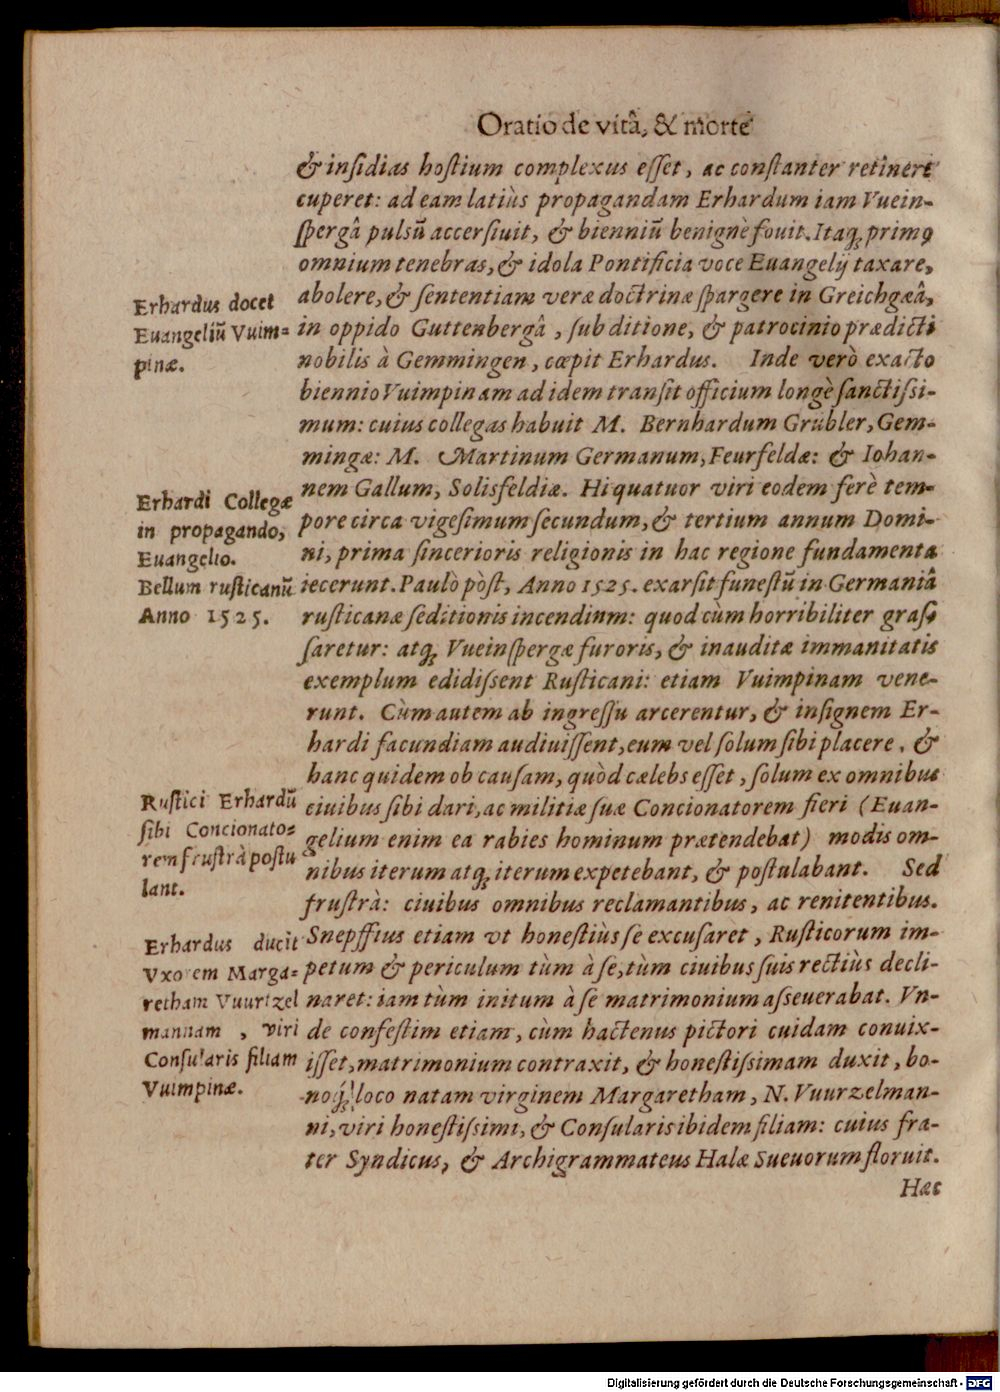 Oratio de vitâ, & morte
& inſidias hoſtium complexus eſſet, ac conſtanter retinere
cuperet: ad eam latiùs propagandam Erhardum iam Vuein-
ſpergâ pulsũ accerſiuit, & bienniũ benignè fouit. Itaq́ꝫ primꝰ
omnium tenebras, & idola Pontificia voce Euangelij taxare,
abolere, & ſententiam veræ doctrinæ ſpargere in Greichgæâ,
in oppido Guttenbergâ, ſub ditione, & patrocinio prædicti
nobilis à Gemmingen, cœpit Erhardus. Inde verò exacto
biennio Vuimpinam ad idem tranſit officium longè ſanctiſsi-
mum: cuius collegas habuit M. Bernhardum Grübler, Gem-
mingæ: M. Martinum Germanum, Feurfeldæ: & Iohan-
nem Gallum, Solisfeldiæ. Hi quatuor viri eodem ferè tem-
pore circa vigeſimum ſecundum, & tertium annum Domi-
ni, prima ſincerioris religionis in hac regione fundamenta
iecerunt. Paulò pòſt, Anno 1525. exarſit funeſtũ in Germaniâ
ruſticanæ ſeditionis incendium: quod cùm horribiliter graſ-
ſaretur: atq́ꝫ Vueinſpergæ furoris, & inauditæ immanitatis
exemplum edidiſsent Ruſticani: etiam Vuimpinam vene-
runt. Cùm autem ab ingreſſu arcerentur, & inſignem Er-
hardi facundiam audiuiſſent, eum vel ſolum ſibi placere, &
hanc quidem ob cauſam, quòd cælebs eſſet, ſolum ex omnibus
ciuibus ſibi dari, ac militiæ ſuæ Concionatorem fieri (Euan-
gelium enim ea rabies hominum prætendebat) modis om-
nibus iterum atq́ꝫ iterum expetebant, & poſtulabant. Sed
fruſtrà: ciuibus omnibus reclamantibus, ac renitentibus.
Snepffius etiam vt honeſtiùs ſe excuſaret, Ruſticorum im-
petum & periculum tùm à ſe, tùm ciuibus ſuis rectiùs decli-
naret: iam tùm initum à ſe matrimonium aſseuerabat. Vn-
de confeſtim etiam, cùm hactenus pictori cuidam conuix-
iſſet, matrimonium contraxit, & honeſtiſsimam duxit, bo-
noq́ꝫ loco natam virginem Margaretham, N. Vuurzelman-
ni, viri honeſtiſsimi, & Conſularis ibidem filiam: cuius fra-
ter Syndicus, & Archigrammateus Halæ Sueuorum floruit.
Hæc
Erhardus docet
Euangeliũ Vuim-
pinæ.
Erhardi Collegæ
in propagando,
Euangelio.
Bellum ruſticanũ
Anno 1525.
Ruſtici Erhardũ
ſibi Concionato-
rem fruſtrà poſtu
lant.
Erhardus ducit
Vxorem Marga-
retham Vuurtzel
mannam, viri
Conſularis filiam
Vuimpinæ.
Digitalisierung gefördert durch die Deutsche Forschungsgemeinschaft - DFG